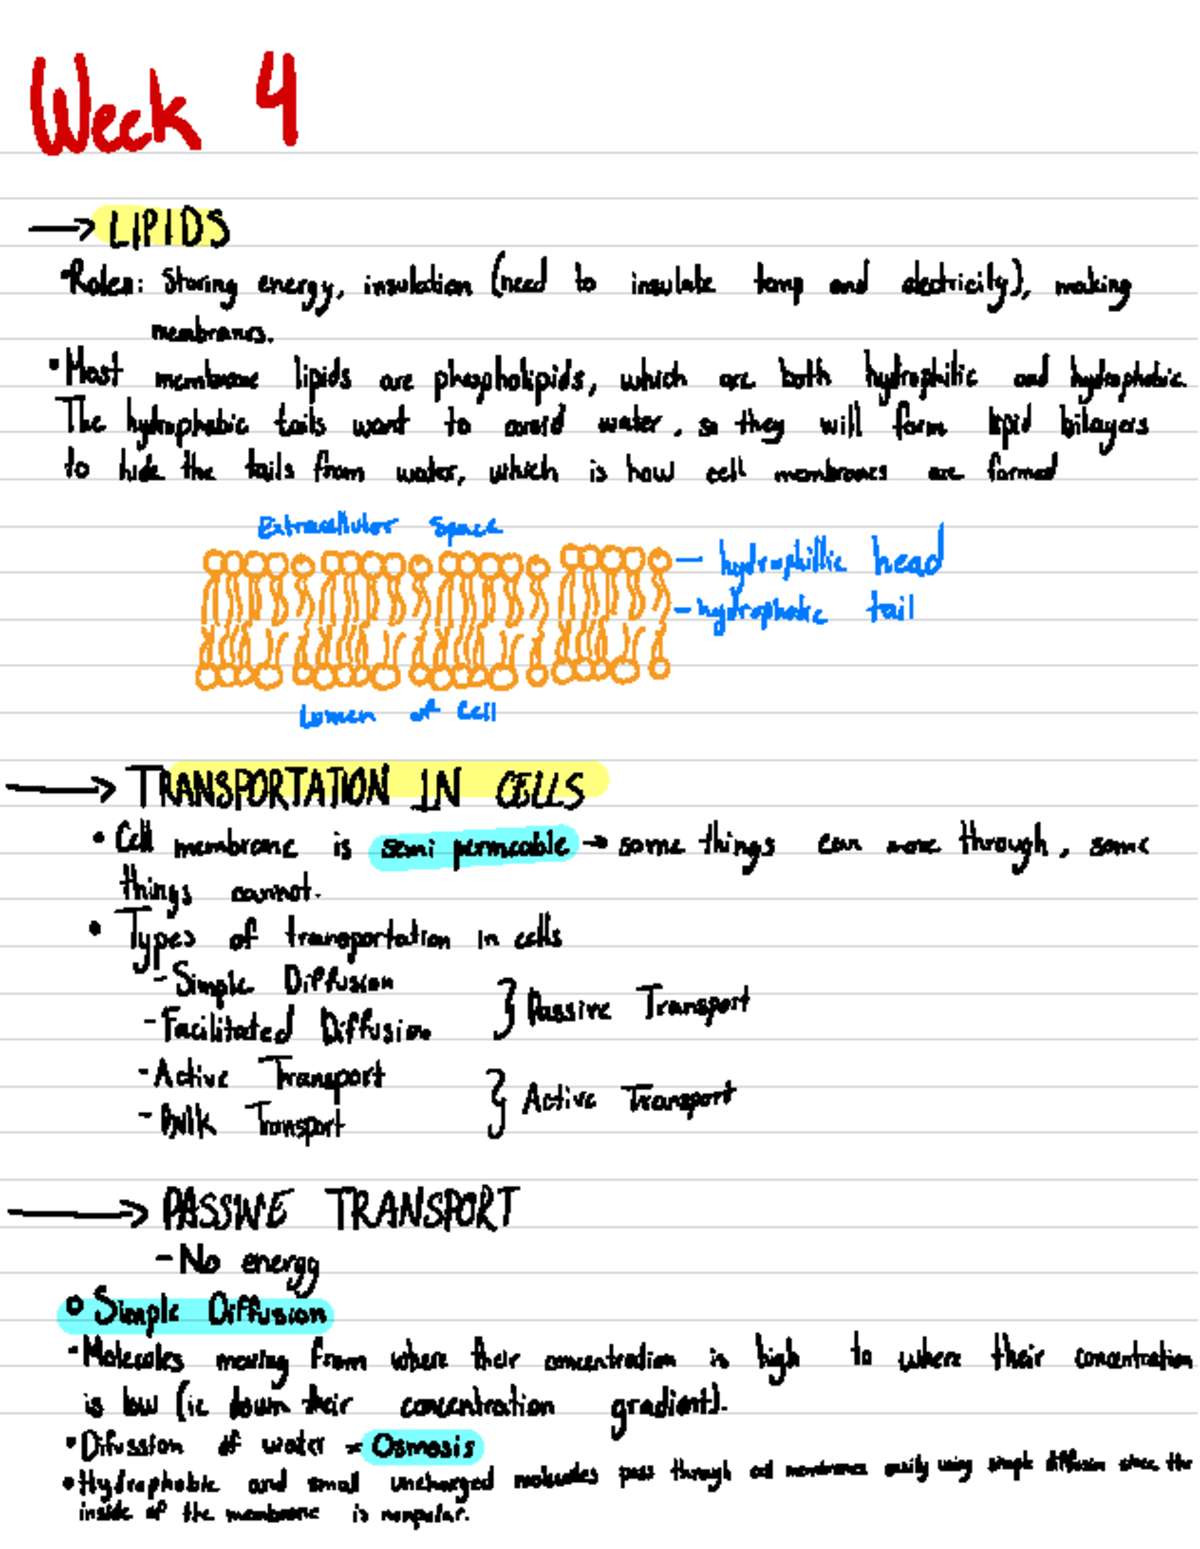 Week 4
→ LIPIDS
•Roles: Storing energy, insulation (need to insulate temp and electricity), making
membranes.
•Most membrane lipids are phospholipids, which are both hydrophilic and hydrophobic.
The hydrophobic tails want to avoid water, so they will form lipid bilayers
to hide the tails from water, which is how cell membranes are formed
Extracellular Space
— hydrophillic head
- hydrophobic tail
Lumen of Cell
→ TRANSPORTATION IN CELLS
• Cell membrane is semi permeable → some things can move through, some
things cannot.
• Types of transportation in cells
- Simple Diffusion
- Facilitated Diffusion
} Passive Transport
- Active Transport
- Bulk Transport
} Active Transport
→ PASSIVE TRANSPORT
- No energy
o Simple Diffusion
- Molecules moving from where their concentration is high to where their concentration
is low (ie down their concentration gradient).
• Difussion of water = Osmosis
• Hydrophobic and small uncharged molecules pass through cell membranes easily using simple diffusion since the
inside of the membrane is nonpolar.